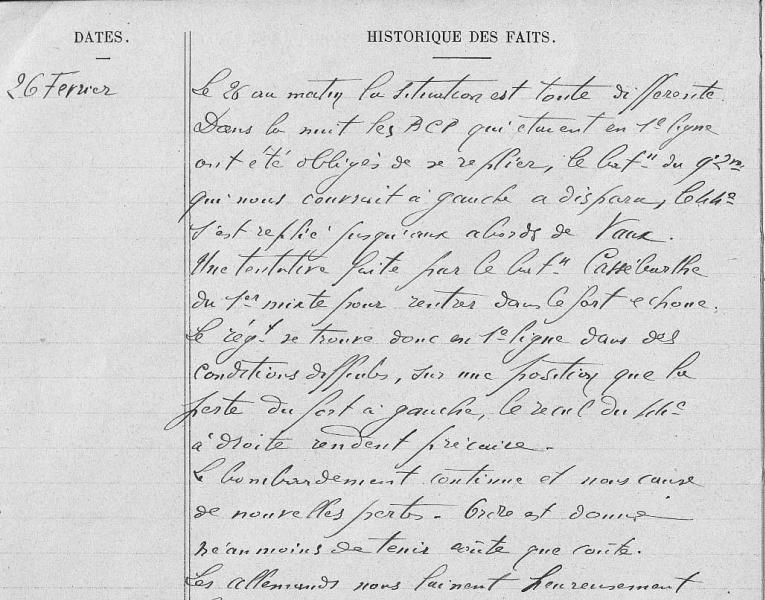 DATES.
HISTORIQUE DES FAITS.
26 Fevrier
Le 26 au matin la situation est toute differente.
Dans la nuit les BCP qui étaient en 1e ligne
ont été obligés de se replier, le batn du 9e
qui nous couvrait à gauche a disparu, le 44e
s'est replié jusqu'aux abords de Vaux.
Une tentative faite par le batn
du 1er mixte pour rentrer dans le fort echoue.
Le régt se trouve donc en 1e ligne dans des
conditions difficiles, sur une position que la
perte du fort à gauche, le recul du 44e
à droite rendent précaire.
Le bombardement continue et nous cause
de nouvelles pertes. Ordre est donné
néanmoins de tenir coûte que coûte.
Les allemands nous laissent heureusement